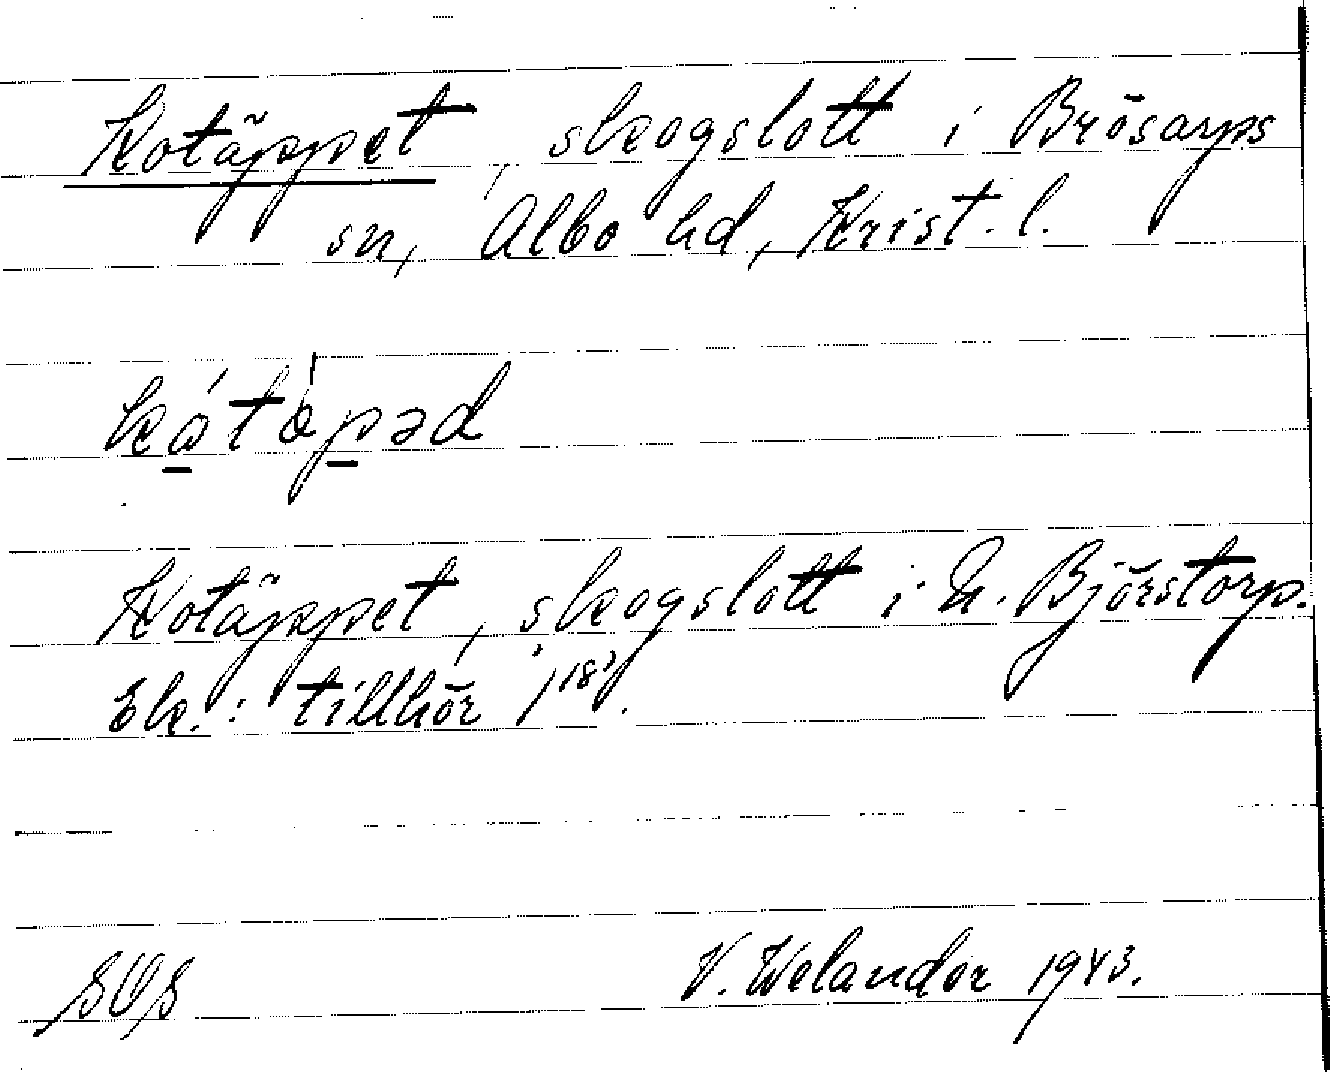 Kotäppet, skogslott i Brösarps
sn, Albo hd, Krist. l.
Kotäppet, skogslott i N. Björstorp.
Ek.: tillhör
V. Welander 1943.